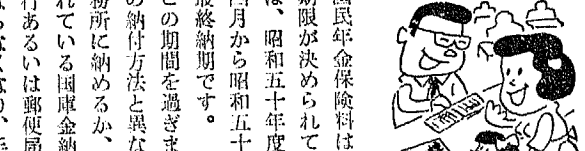 国民年金保険料は
期限が決められて
は、昭和五十年度
四月から昭和五十
最終納期です。
この期間を過ぎま
の納付方法と異な
務所に納めるか、
れている国庫金納
行あるいは郵便局